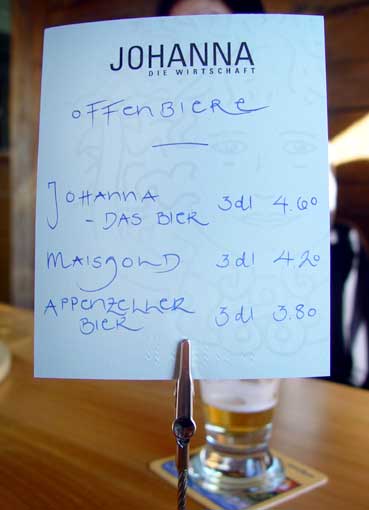 JOHANNA
DIE WIRTSCHAFT
OFFENBIERE
JOHANNA
- DAS BIER 3dl 4.60
MAISGOLD 3dl 4.20
APPENZELLER
BIER 3dl 3.80